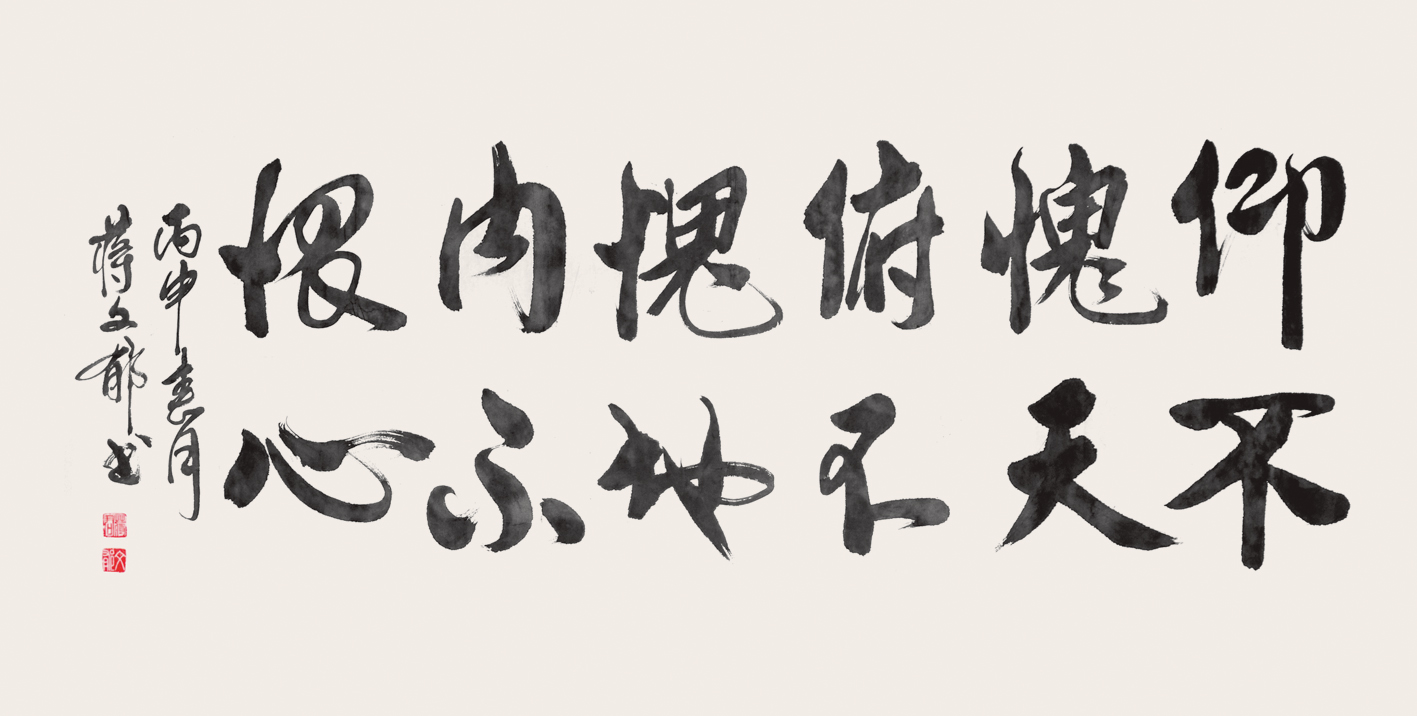 仰不
愧天
俯不
愧地
内不
愧心
丙申春月
蒋文郁书